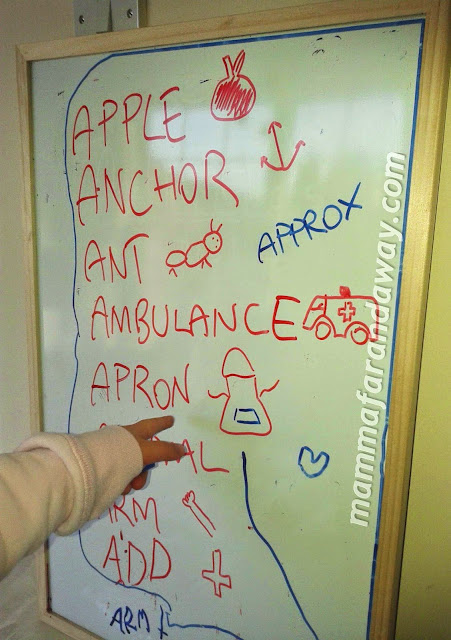 APPLE
ANCHOR
ANT
APPROX
AMBULANCE
APRON
ARM
ADD
ARM
mammafarandaway.com